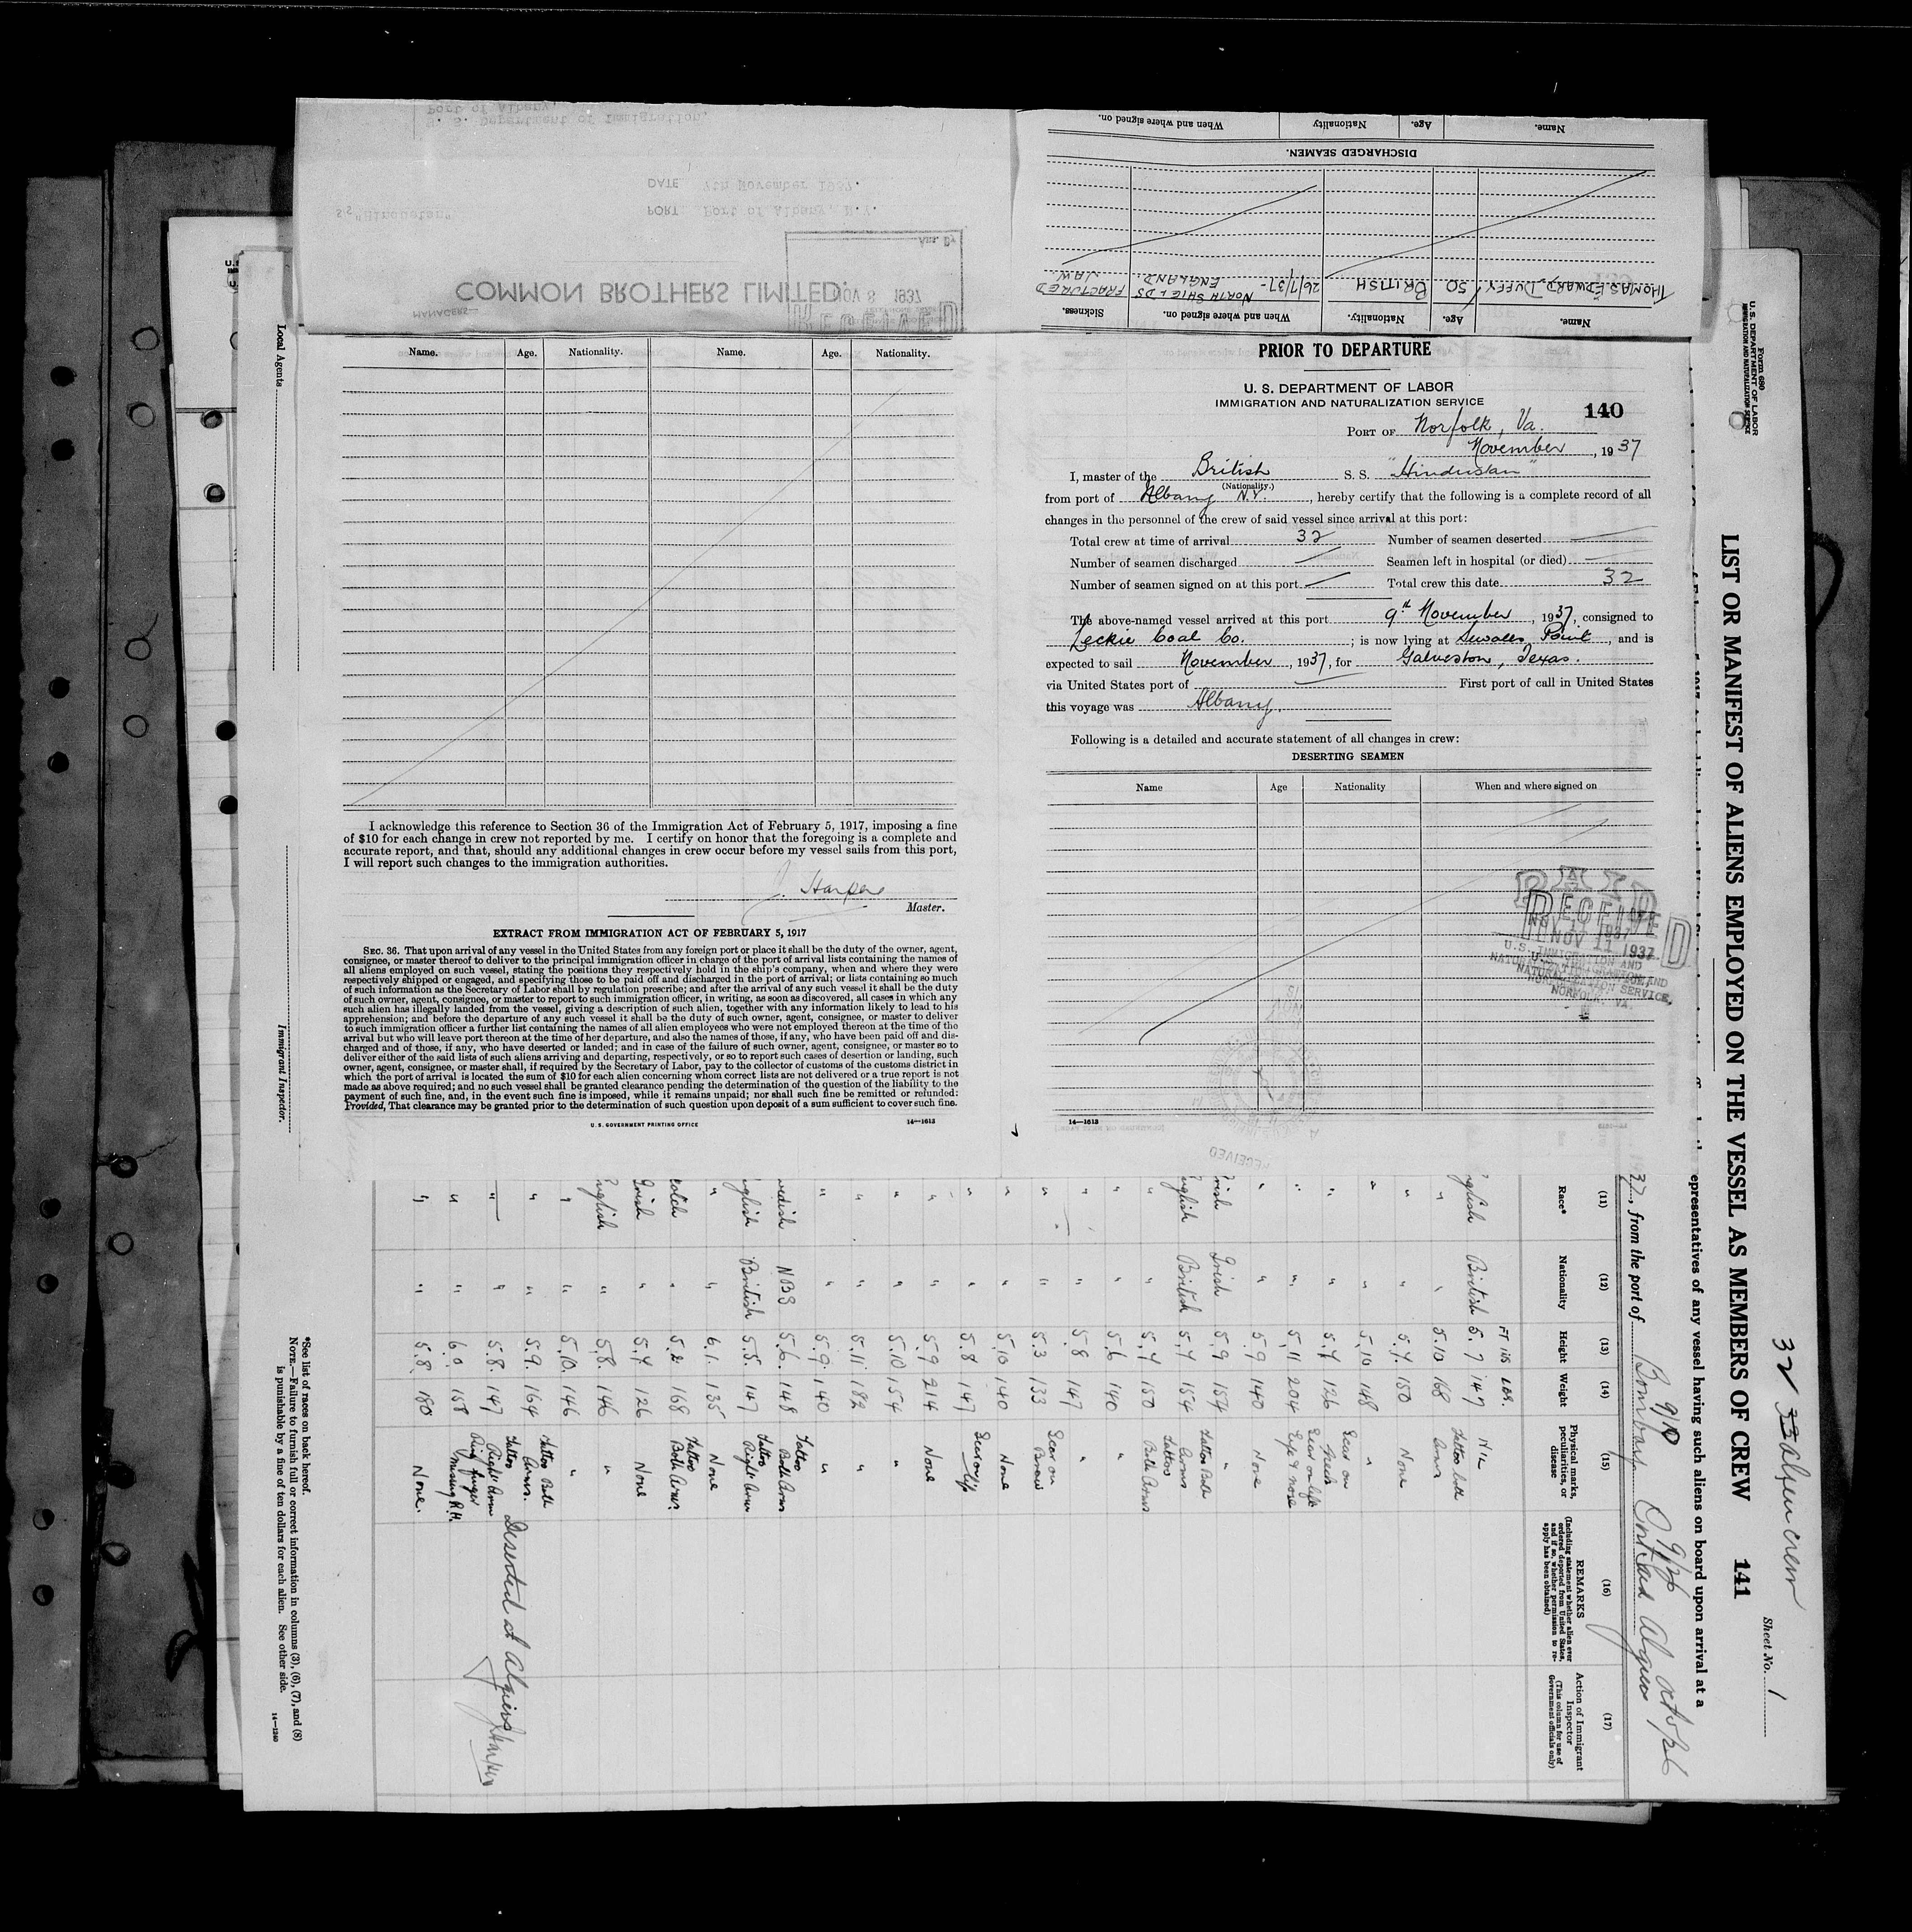 Name. Age. Nationality. When and where signed on.
DISCHARGED SEAMEN.
THOMAS EDWARD DUFFEY 50 BRITISH 26/7/37- NORTH SHIELDS ENGLAND. FRACTURED JAW.
Name. Age. Nationality. When and where signed on. Sickness.
U. S. Department of Immigration,
Port of Albany.
DATE 7th November 1937.
PORT Port of Albany, N.Y.
SS "Hindustan"
COMMON BROTHERS LIMITED.
MANAGERS
Ans. By
NOV 8 1937
RECEIVED
Name. Age. Nationality. Name. Age. Nationality.
I acknowledge this reference to Section 36 of the Immigration Act of February 5, 1917, imposing a fine
of $10 for each change in crew not reported by me. I certify on honor that the foregoing is a complete and
accurate report, and that, should any additional changes in crew occur before my vessel sails from this port,
I will report such changes to the immigration authorities.
Master.
EXTRACT FROM IMMIGRATION ACT OF FEBRUARY 5, 1917
SEC. 36. That upon arrival of any vessel in the United States from any foreign port or place it shall be the duty of the owner, agent,
consignee, or master thereof to deliver to the principal immigration officer in charge of the port of arrival lists containing the names of
all aliens employed on such vessel, stating the positions they respectively hold in the ship's company, when and where they were
respectively shipped or engaged, and specifying those to be paid off and discharged in the port of arrival; or lists containing so much
of such information as the Secretary of Labor shall by regulation prescribe; and after the arrival of any such vessel it shall be the duty
of such owner, agent, consignee, or master to report to such immigration officer, in writing, as soon as discovered, all cases in which any
such alien has illegally landed from the vessel, giving a description of such alien, together with any information likely to lead to his
apprehension; and before the departure of any such vessel it shall be the duty of such owner, agent, consignee, or master to deliver
to such immigration officer a further list containing the names of all alien employees who were not employed thereon at the time of the
arrival but who will leave port thereon at the time of her departure, and also the names of those, if any, who have been paid off and dis-
charged and of those, if any, who have deserted or landed; and in case of the failure of such owner, agent, consignee, or master so to
deliver either of the said lists of such aliens arriving and departing, respectively, or so to report such cases of desertion or landing, such
owner, agent, consignee, or master shall, if required by the Secretary of Labor, pay to the collector of customs of the customs district in
which the port of arrival is located the sum of $10 for each alien concerning whom correct lists are not delivered or a true report is not
made as above required; and no such vessel shall be granted clearance pending the determination of the question of the liability to the
payment of such fine, and, in the event such fine is imposed, while it remains unpaid; nor shall such fine be remitted or refunded:
Provided, That clearance may be granted prior to the determination of such question upon deposit of a sum sufficient to cover such fine.
U. S. GOVERNMENT PRINTING OFFICE 14—1613
PRIOR TO DEPARTURE
U. S. DEPARTMENT OF LABOR
IMMIGRATION AND NATURALIZATION SERVICE
140
PORT OF Norfolk, Va.
November, 1937
I, master of the British S. S. "Hindustan"
(Nationality.)
from port of Albany N.Y., hereby certify that the following is a complete record of all
changes in the personnel of the crew of said vessel since arrival at this port:
Total crew at time of arrival 32 Number of seamen deserted
Number of seamen discharged Seamen left in hospital (or died)
Number of seamen signed on at this port Total crew this date 32
The above-named vessel arrived at this port 9th November, 1937, consigned to
Leckie Coal Co.; is now lying at Sewalls Point, and is
expected to sail November, 1937, for Galveston, Texas.
via United States port of First port of call in United States
this voyage was Albany.
Following is a detailed and accurate statement of all changes in crew:
DESERTING SEAMEN
Name Age Nationality When and where signed on
PAID
RECEIVED
NOV 11 1937
U. S. IMMIGRATION AND
NATURALIZATION SERVICE,
NORFOLK, VA.
14—1613
RECEIVED
Local Agents
Immigrant Inspector.
Form 680
U. S. DEPARTMENT OF LABOR
IMMIGRATION AND NATURALIZATION SERVICE
LIST OR MANIFEST OF ALIENS EMPLOYED ON THE VESSEL AS MEMBERS OF CREW 141
32 33 Alien crew
Sheet No. 1
epresentatives of any vessel having such aliens on board upon arrival at a
37, from the port of Bombay
(11) (12) (13) (14) (15) (16) (17)
Race* Nationality Height Weight Physical marks, peculiarities, or disease
REMARKS
(Including statement whether alien ever ordered deported from United States, and if so, whether permission to reapply has been obtained)
Action of Immigrant Inspector
(This column for use of Government officials only)
FT INS LBS.
nglish British 5.7 147 NIL
" " 5.10 168 Tattoo both Arms
" " 5.7. 150 None
" " 5.10 148 "
" " 5.7 126 Scar on
" " 5.11 204 Scar on left Eye & nose
" " 5.9 140 None
rish Irish 5.9 154 "
nglish British 5.7 154 Tattoo Both Arms
" 5.7 150 Tattoo Both Arms
" " 5.6 140 "
" 5.8 147 "
" " 5.3 133 Scar on Brow
" " 5.10 140 None
" " 5.8 147 Scar on lip
" " 5.9 214 None
" " 5.10 154 "
" " 5.11. 182 "
" " 5.9. 140 "
wedish NBS 5.6. 148 Tattoo Both Arms
nglish British 5.5. 147 Tattoo Right Arm
" " 6.1. 135 None
cotch " 5.2 168 Tattoo Both Arms.
Irish " 5.7 126 None
nglish " 5.8. 146 "
" " 5.10. 146 "
" " 5.9. 164 Tattoo Both Arms.
" 5.8. 147 Tattoo Right Arm Deserted at Algiers J Harper
" " 6.0. 158 Ring finger Missing R.H.
" " 5.8. 180 None.
*See list of races on back hereof.
NOTE.—Failure to furnish full or correct information in columns (3), (6), (7), and (8)
is punishable by a fine of ten dollars for each alien. See other side.
14—1240